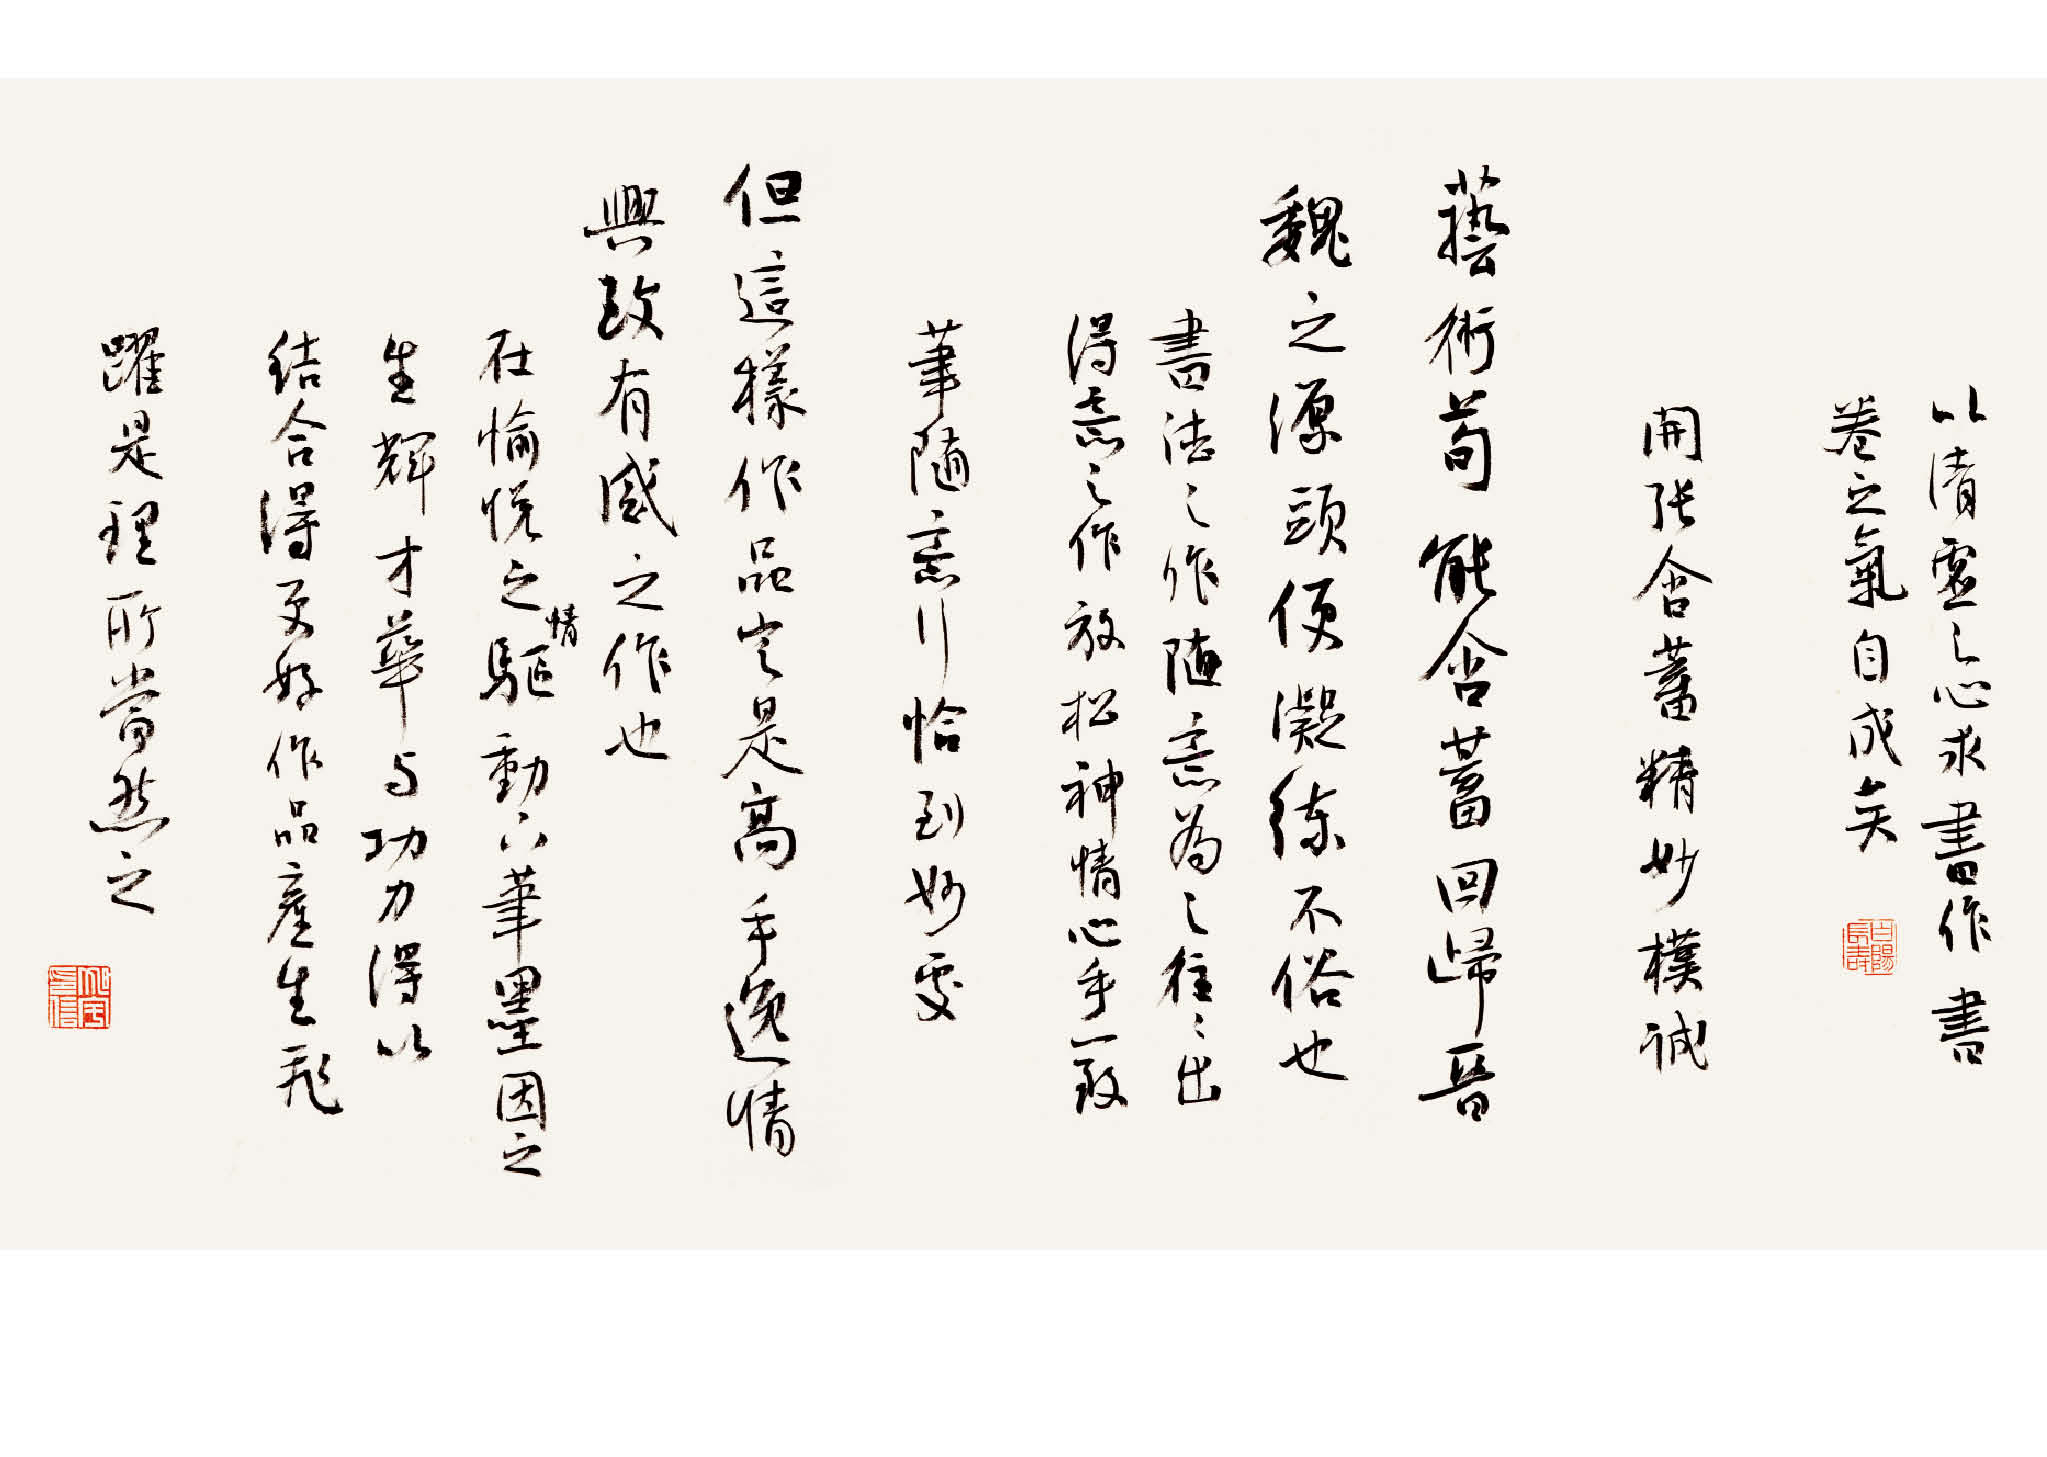 以清虛之心求書作書
卷之氣自成矣
白陽
長壽
開張含蓄精妙樸誠
藝術苟能含蓄回歸晉
魏之源頭便凝練不俗也
書法之作隨意為之往々出
得意之作放松神情心手一致
筆隨意行恰到妙處
但這樣作品定是高手逸情
興致有感之作也
在愉悅之情驅動下筆墨因之
生輝才華与功力得以
結合得更好作品產生飛
躍是理所當然之